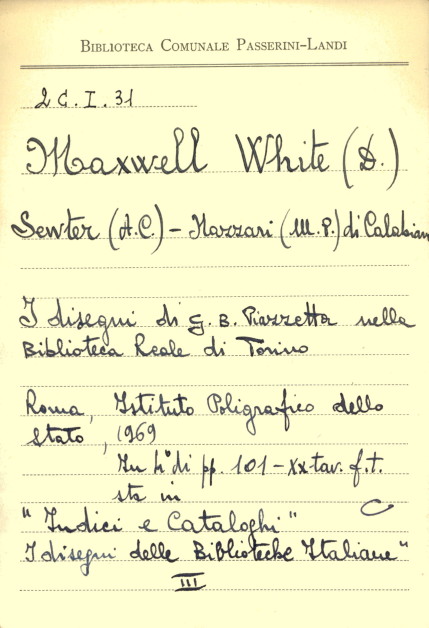 BIBLIOTECA COMUNALE PASSERINI-LANDI
2 C. I. 31
Maxwell White (D.)
Sewter (A.C.) - Nazzari (M. P.) di Calabian
I disegni di G. B. Piazzetta nella
Biblioteca Reale di Torino
Roma, Istituto Poligrafico dello
Stato, 1969
In 4° di pp. 101 - XX tav. f.t.
sta in
C
"Indici e Cataloghi"
I disegni delle Biblioteche Italiane"
III